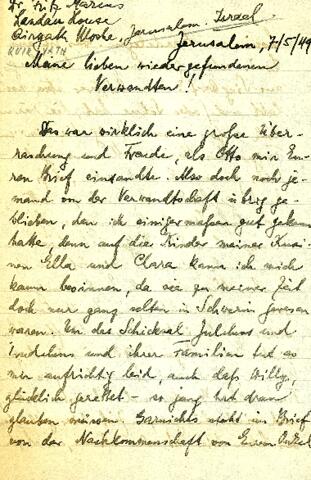 Dr. Fritz Marcus
Landau House
Kirjath Moshe, Jerusalem. Israel
KIRJATH
Jerusalem, 7/5/49
Meine lieben wiedergefundenen
Verwandten!
Das war wirklich eine große Über-
raschung und Freude, als Otto mir Eu-
ren Brief einsandte. Also doch noch je-
mand von der Verwandtschaft übrig ge-
blieben, den ich einigermaßen gut gekannt
hatte, denn auf die Kinder meiner Kusi-
nen Ella und Clara kann ich mich
kaum besinnen, da sie zu meiner Zeit
doch nur ganz selten in Schwerin gewesen
waren. Um das Schicksal Julchens und
Trudchens und ihrer Familien tut es
mir aufrichtig leid, auch daß Willy,
glücklich gerettet - so jung hat dran
glauben müssen. Garnichts steht im Brief
von der Nachkommenschaft von Eurem Onkel